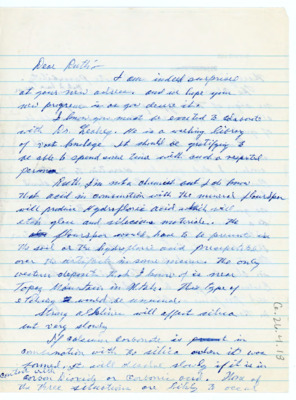 Dear Ruth:-
I am indeed surprised
at your new address. and we hope you
new progress is as you desire it.
I know you must be excited to
with Dr. Leakey. He is a walking library
of vast knowledge. It should be gratifying to
be able to spend some time with such a
person.
Ruth I'm not a chemist but I do know
that acid in combination with the mineral flourspar
will produce hydrofloric acid which will
etch glass and silicious materials. The
flourspar would have to be present in
the soil or the hydrofloric acid
over the in some manner. The only
western deposit that I know of is near
Topaz Mountain in Utah. This type of
etching would be
Strong alkalines will affect silica
but very slowly
If calcium carbonate is in
combination with the silica when it was
formed, it will dissolve slowly if it is in
contact with
carbon dioxide or carbonic acid.
of the three situations are likely to occur